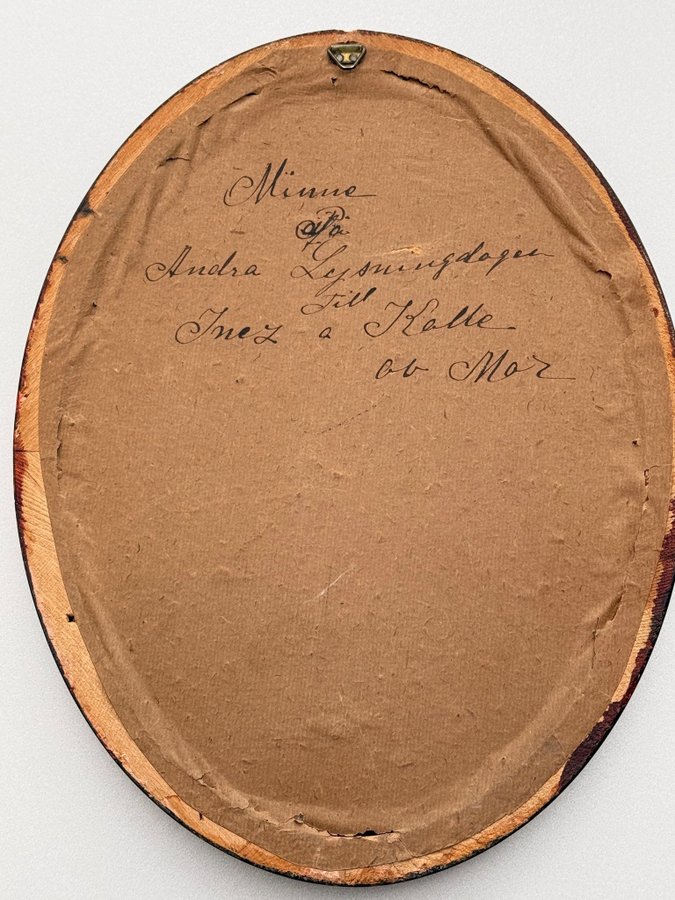 Minne
På
Andra Lysningdagen
till
Inez a Kalle
av Mor